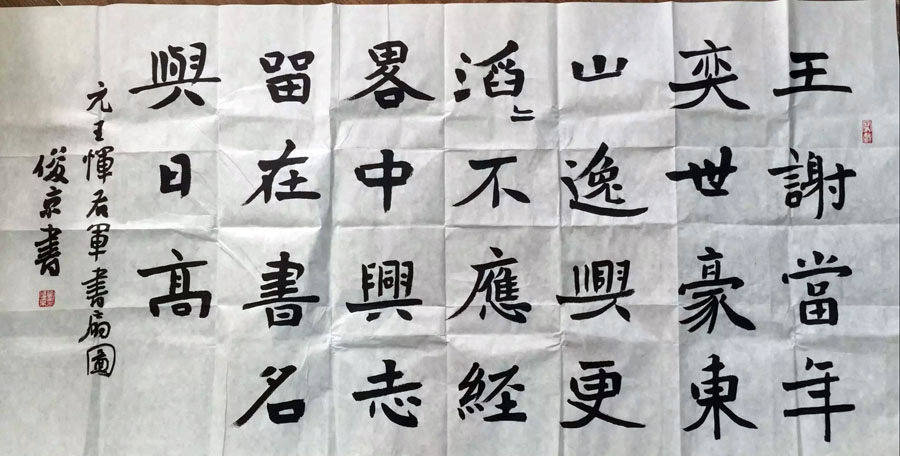 王謝當年
奕世豪東
山逸興更
滔〻不應経
畧中興志
留在書名
與日高
元王惲右軍書扇圖
俊京書